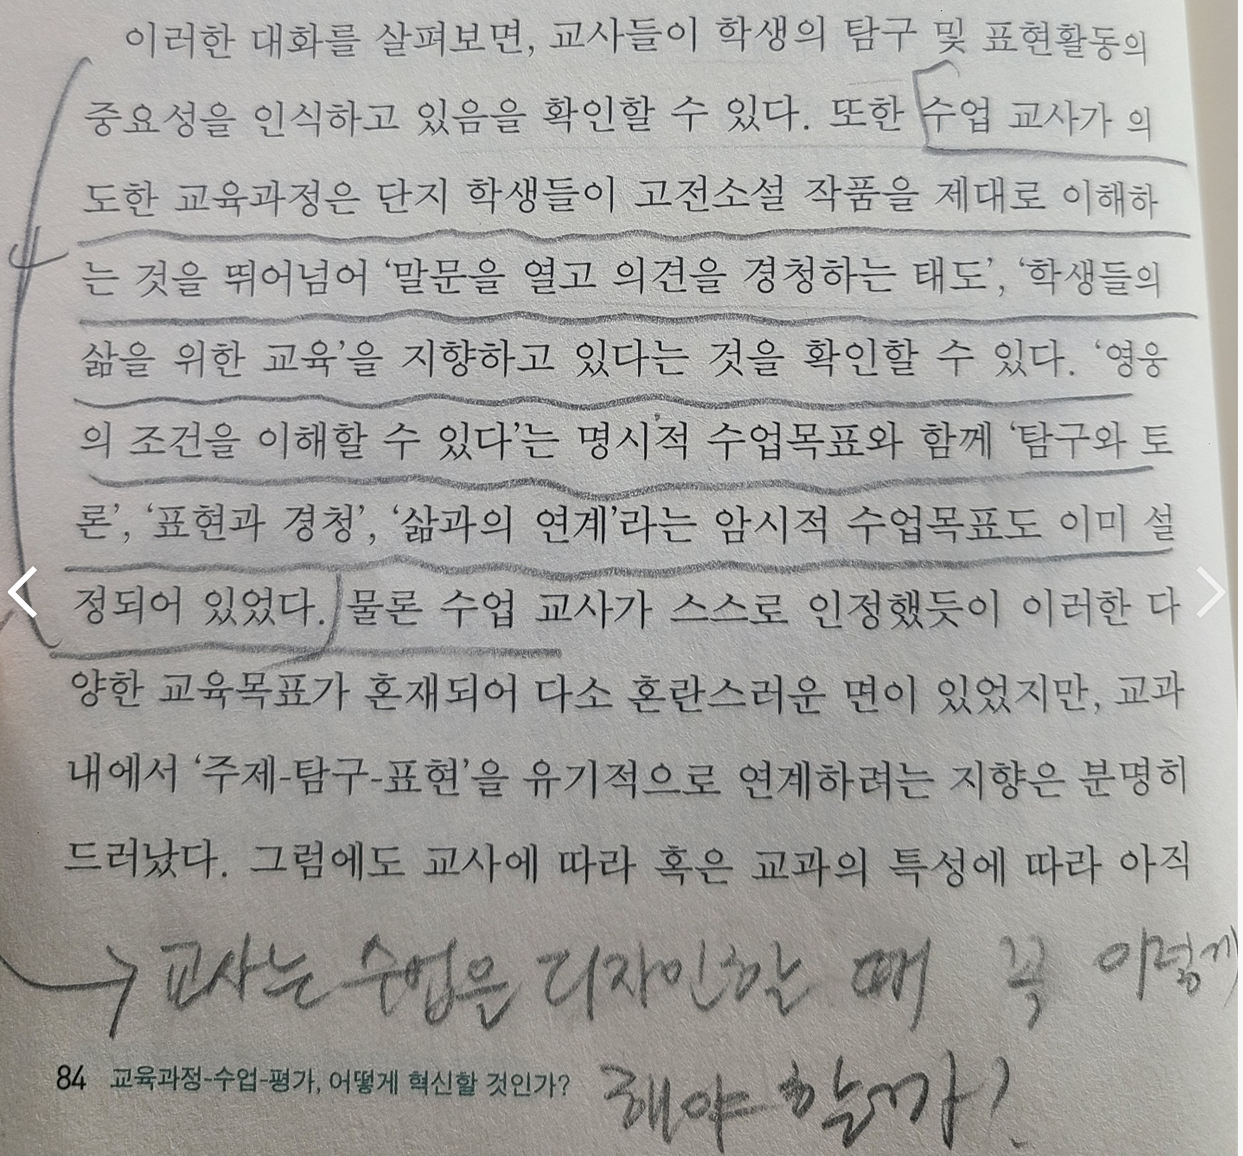 이러한 대화를 살펴보면, 교사들이 학생의 탐구 및 표현활동의
중요성을 인식하고 있음을 확인할 수 있다. 또한 수업 교사가 의
도한 교육과정은 단지 학생들이 고전소설 작품을 제대로 이해하
는 것을 뛰어넘어 ‘말문을 열고 의견을 경청하는 태도’, ‘학생들의
삶을 위한 교육’을 지향하고 있다는 것을 확인할 수 있다. ‘영웅
의 조건을 이해할 수 있다’는 명시적 수업목표와 함께 ‘탐구와 토
론’, ‘표현과 경청’, ‘삶과의 연계’라는 암시적 수업목표도 이미 설
정되어 있었다. 물론 수업 교사가 스스로 인정했듯이 이러한 다
양한 교육목표가 혼재되어 다소 혼란스러운 면이 있었지만, 교과
내에서 ‘주제-탐구-표현’을 유기적으로 연계하려는 지향은 분명히
드러났다. 그럼에도 교사에 따라 혹은 교과의 특성에 따라 아직
교사는 수업을 디자인할 때 꼭 이렇게
해야 할까?
84 교육과정-수업-평가, 어떻게 혁신할 것인가?